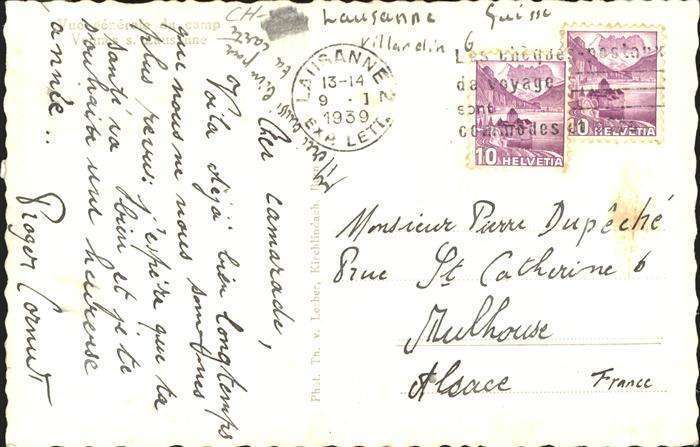 Vue générale du camp
CH-
Lausanne Suisse
Villardin 6
LAUSANNE 2
13-14
9. I
1939
EXP. LETT.
Les chèques postaux
de voyage
sont
commodes
10 HELVETIA
10 HELVETIA
Cher camarade,
Voilà déjà bien longtemps
que nous ne nous sommes
plus revus; j'espère que ta
santé va bien et je te
souhaite une heureuse
année..
Roger Cornut
Phot. Th. v. Lerber, Kirchlindach.
Monsieur Pierre Dupêché
Rue St Catherine 6
Mulhouse
Alsace France